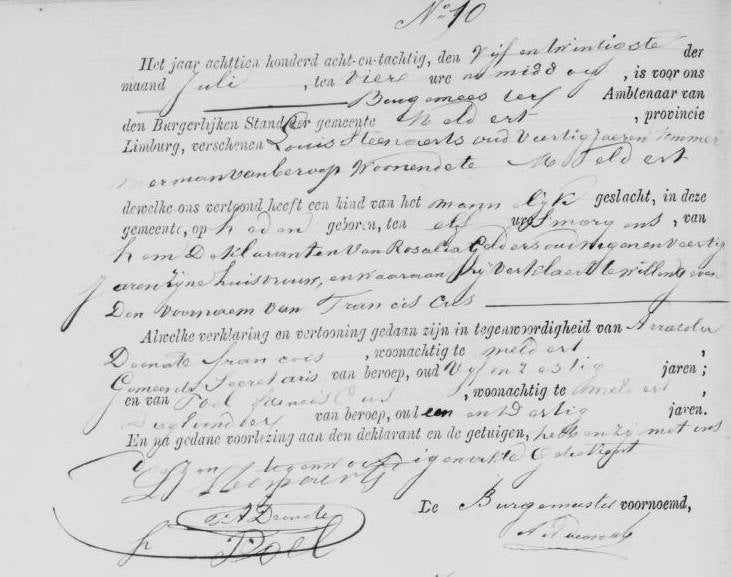 No 10
Het jaar achttien honderd acht-en-tachtig, den Vijf en twintigste der
maand Juli , ten vier ure na midd ag , is voor ons
Burgemeester Ambtenaar van
den Burgerlijken Stand der gemeente Meldert , provincie
Limburg, verschenen Louis Steenaerts oud Veertig jaeren temmer
merman van beroep Woonende te Meldert
dewelke ons vertoond heeft een kind van het mann elijk geslacht, in deze
gemeente, op heden geboren, ten elf ure Smorgens , van
hem Deklarant en Van Rosalia Gelders oud en veertig
jaren zijne huisvrouw, en waaraan hij verklaert te willen geven
Den voornaem van Franciscus
Alwelke verklaring en vertooning gedaan zijn in tegenwoordigheid van
Francois , woonachtig te meldert ,
Gemeente Secretaris van beroep, oud Vijf en zestig jaren ;
en van Poel Franciscus , woonachtig te meldert ,
Daglooner van beroep, oud een en dertig jaren.
En na gedane voorlezing aan den deklarant en de getuigen, hebben zij met ons
Dezen tegenwoordigen akte Geteekent
L Steenaerts
De Burgemeester voornoemd,
Poel